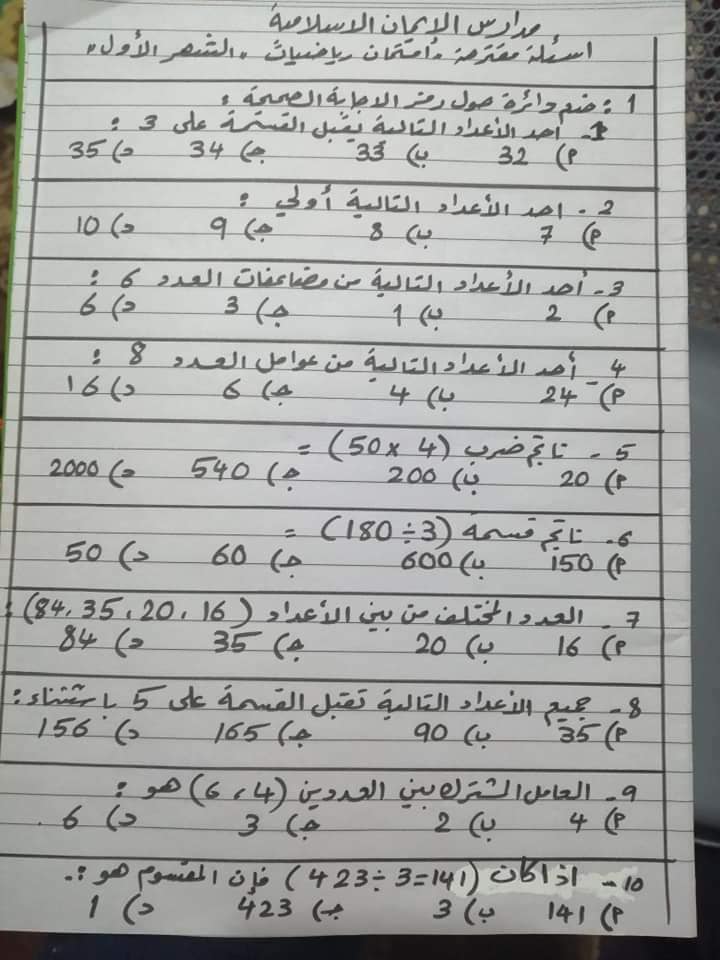 مدارس الإيمان الاسلامية
اسئلة مقترحة "امتحان رياضيات" "الشهر الأول"
1: ضع دائرة حول رمز الاجابة الصحيحة :
1- احد الأعداد التالية يقبل القسمة على 3 :
أ) 32 ب) 33 جـ) 34 د) 35
2- احد الأعداد التالية أولي :
أ) 7 ب) 8 جـ) 9 د) 10
3- أحد الأعداد التالية من مضاعفات العدد 6 :
أ) 2 ب) 1 جـ) 3 د) 6
4- أحد الأعداد التالية من عوامل العدد 8 :
أ) 24 ب) 4 جـ) 6 د) 16
5- ناتج ضرب (4 × 50) =
أ) 20 ب) 200 جـ) 540 د) 2000
6- ناتج قسمة (3÷180) =
أ) 150 ب) 600 جـ) 60 د) 50
7- العدد المختلف من بين الأعداد (16، 20، 35، 84):
أ) 16 ب) 20 جـ) 35 د) 84
8- جميع الأعداد التالية تقبل القسمة على 5 باستثناء:
أ) 35 ب) 90 جـ) 165 د) 156
9- العامل المشترك بين العددين (4، 6) هو :
أ) 4 ب) 2 جـ) 3 د) 6
10- اذا كان (141=3÷423) فإن المقسوم هو :-
أ) 141 ب) 3 جـ) 423 د) 1